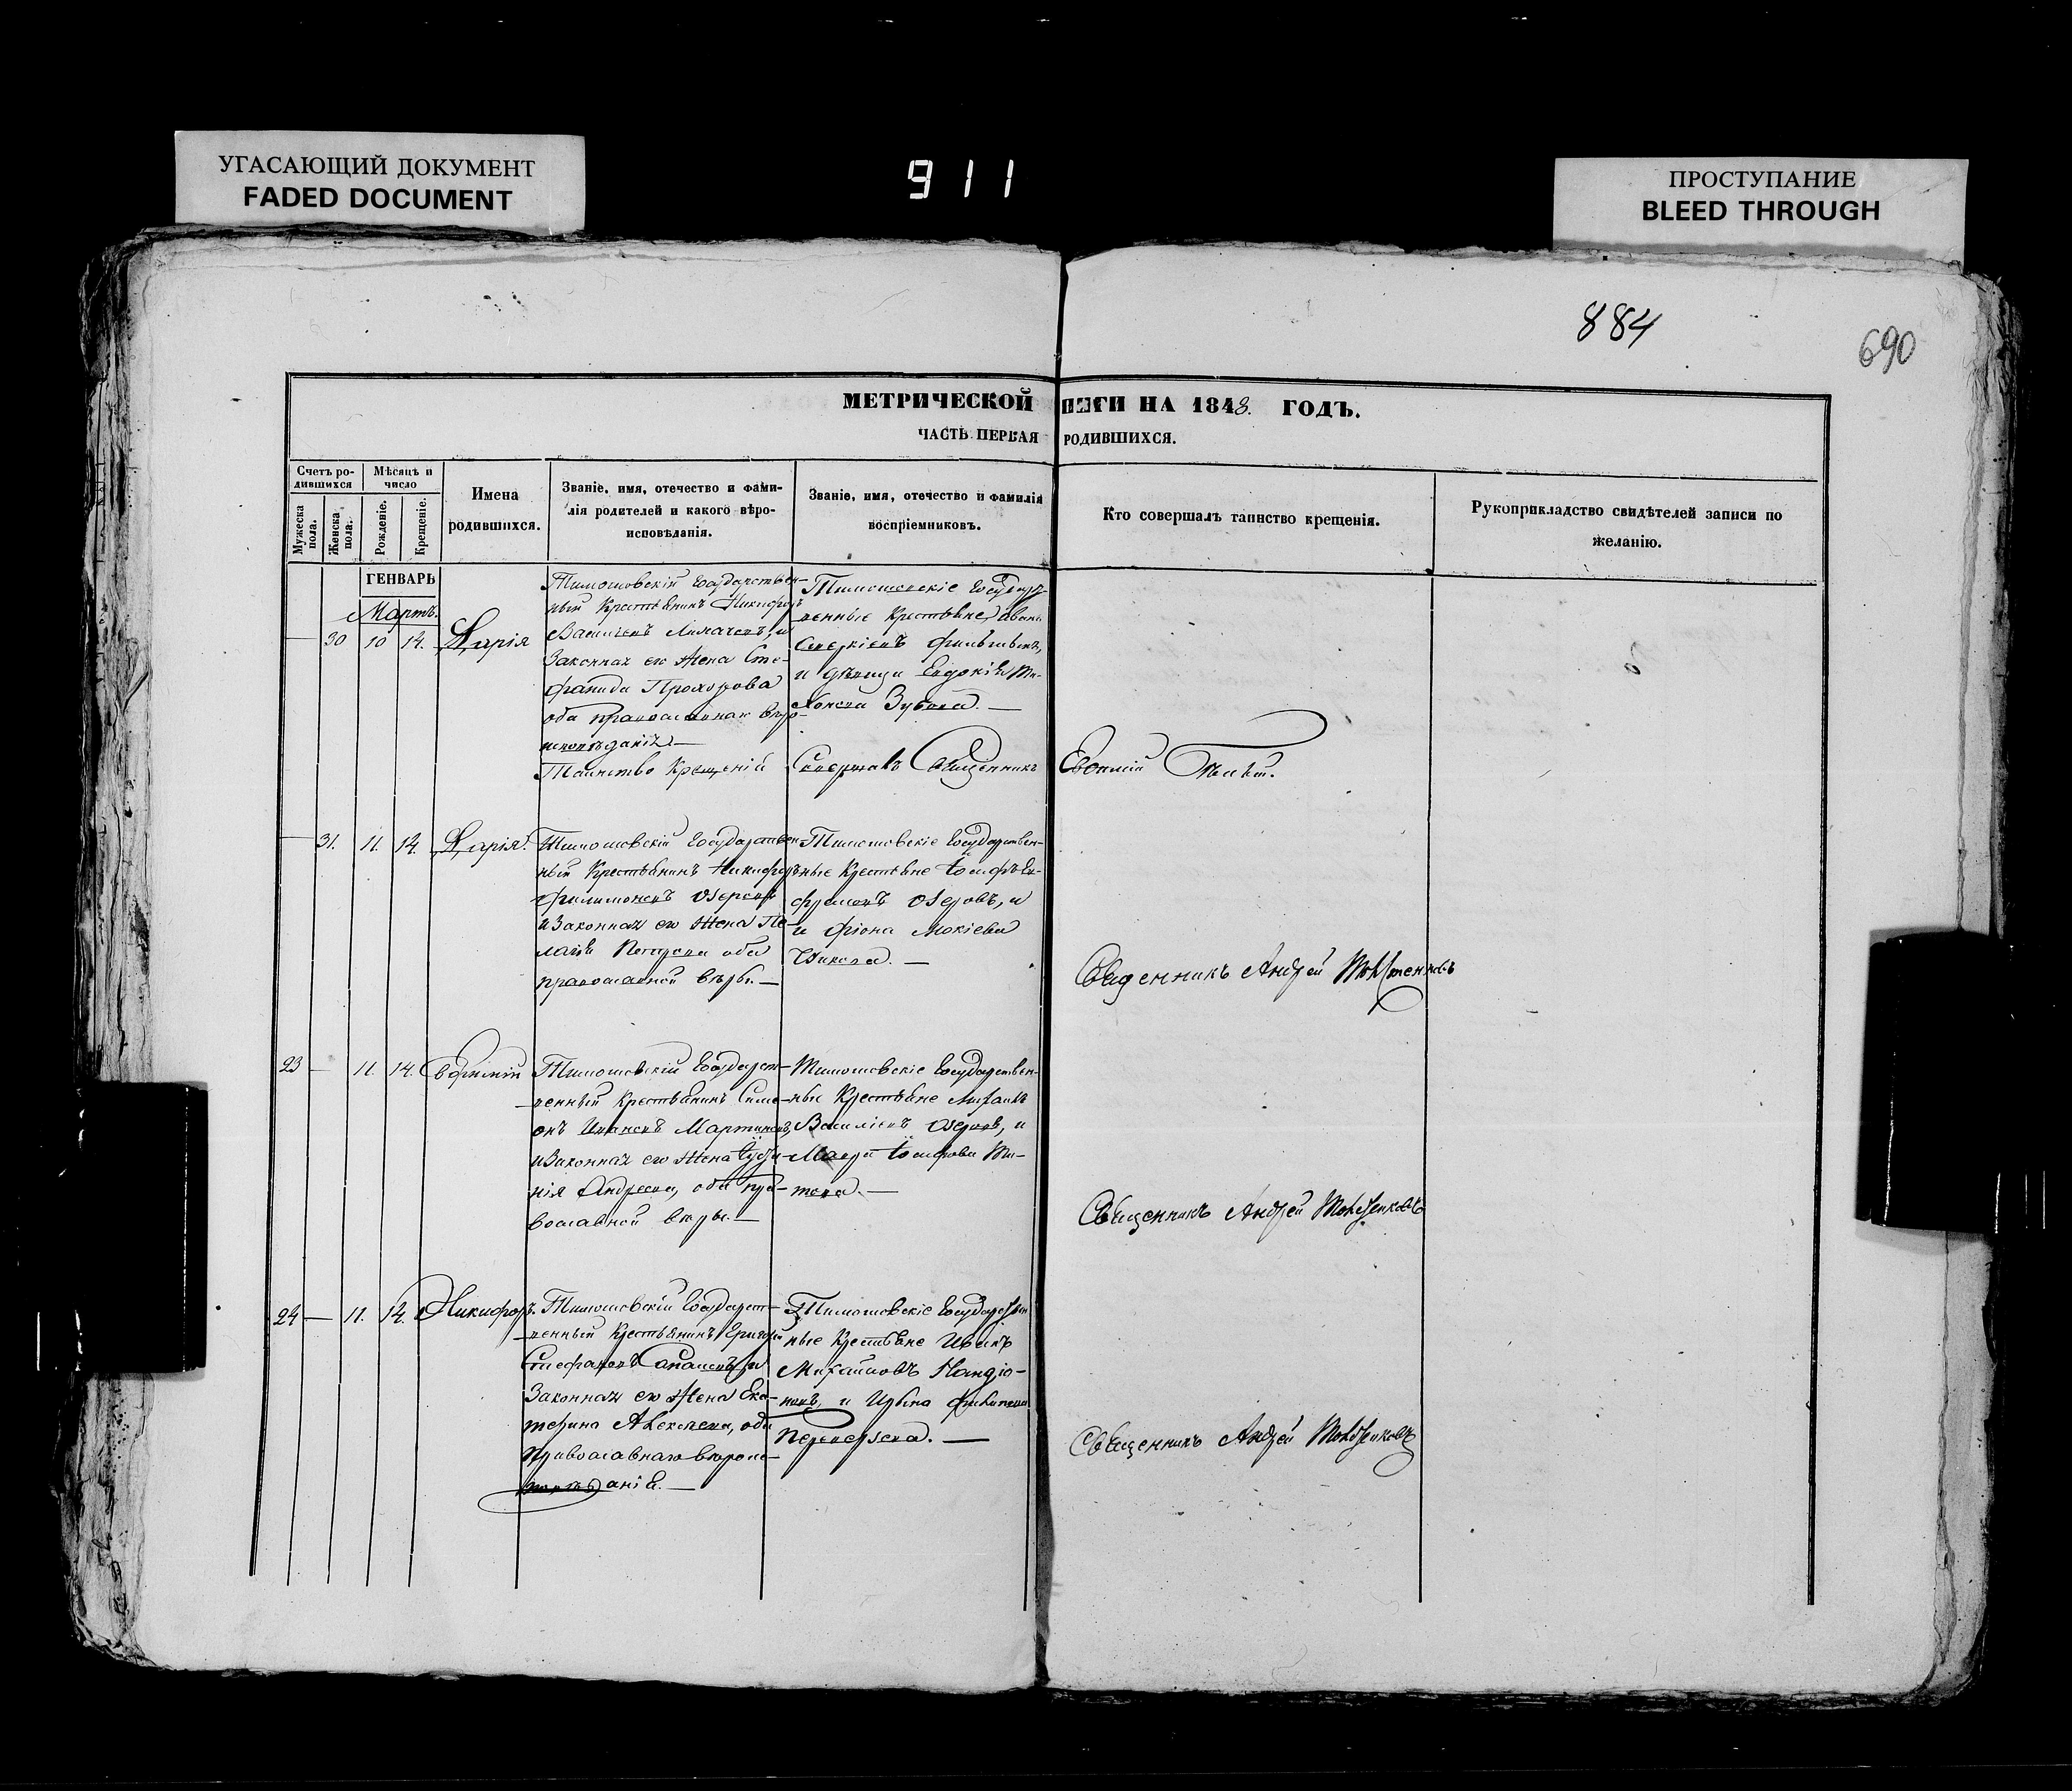 УГАСАЮЩИЙ ДОКУМЕНТ
FADED DOCUMENT
911
ПРОСТУПАНИЕ
BLEED THROUGH
884
690
МЕТРИЧЕСКОЙ КНИГИ НА 1848. ГОДЪ.
ЧАСТЬ ПЕРВАЯ РОДИВШИХСЯ.
Счетъ ро-
дившихся
Мѣсяцъ и
число
Мужеска
пола.
Женска
пола.
Рожденіе.
Крещеніе.
Имена
родившихся.
Званіе, имя, отечество и фами-
лія родителей и какого вѣро-
исповѣданія.
Званіе, имя, отечество и фамилія
воспріемниковъ.
Кто совершалъ таинство крещенія.
Рукоприкладство свидѣтелей записи по
желанію.
ГЕНВАРЬ
Мартъ.
— 30 10 14. Дарія
Тимошовскій Государствен-
ный Крестьянинъ Никифоръ
Василіевъ и
Законная его Жена Сте-
фанида Прохорова
оба православнаго вѣро-
исповѣданія.—
Тимошовскіе Государ-
венные Крестьяне
и дѣвица Евдокія Ти-
хонова Зубова. —
Таинство Крещенія Совершалъ Священникъ Евѳимій
— 31. 11. 14. Дарія.
Тимошовскій Государствен-
ный Крестьянинъ Никифоръ
Филимоновъ Озеровъ
и Законная его Жена Пе-
лагія оба
православной вѣры.—
Тимошовскіе Государствен-
ные Крестьяне Іосифъ Ев-
фремовъ Озеровъ, и
и Фіона Мокіева
Священникъ Андрей
23 — 11. 14. Веніминъ
Тимошовскій Государст-
венный Крестьянинъ Симе-
онъ Ивановъ Мартыновъ,
и Законная его Жена Іусти-
нія Андреева, оба пра-
вославной вѣры.—
Тимошовскіе Государствен-
ные Крестьяне Михаилъ
Василіевъ Озеровъ, и
Мавра Іосифова Ти-
това.—
Священникъ Андрей
24 — 11. 14. Никифоръ.
Тимошовскій Государст-
венный Крестьянинъ Григорій
Стефановъ и
Законная его Жена Ека-
терина Алексеева, оба
Православнаго вѣроис-
повѣданія.—
Тимошовскіе Государствен
ные Крестьяне Иванъ
Михайловъ Ларіо-
новъ, и Ирина Филипова
Переверзева. —
Священникъ Андрей